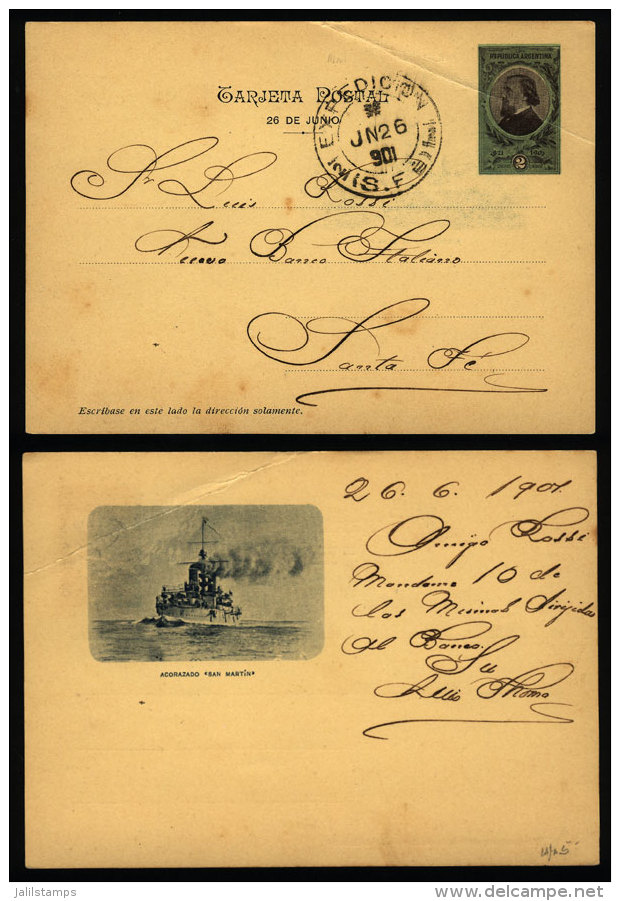 REPUBLICA ARGENTINA
TARJETA POSTAL
26 DE JUNIO
EXPEDICION
JN 26
901
S. F.
1821 1901
2
Sr Luis Rossi
Nuevo Banco Italiano
Santa Fé
Escríbase en este lado la dirección solamente.
26. 6. 1901
Amigo Rossi
Mandeme 10 de
las Mismas dirijidas
al Banco.
Su
ACORAZADO "SAN MARTÍN"
jalilstamps
delcampe.net